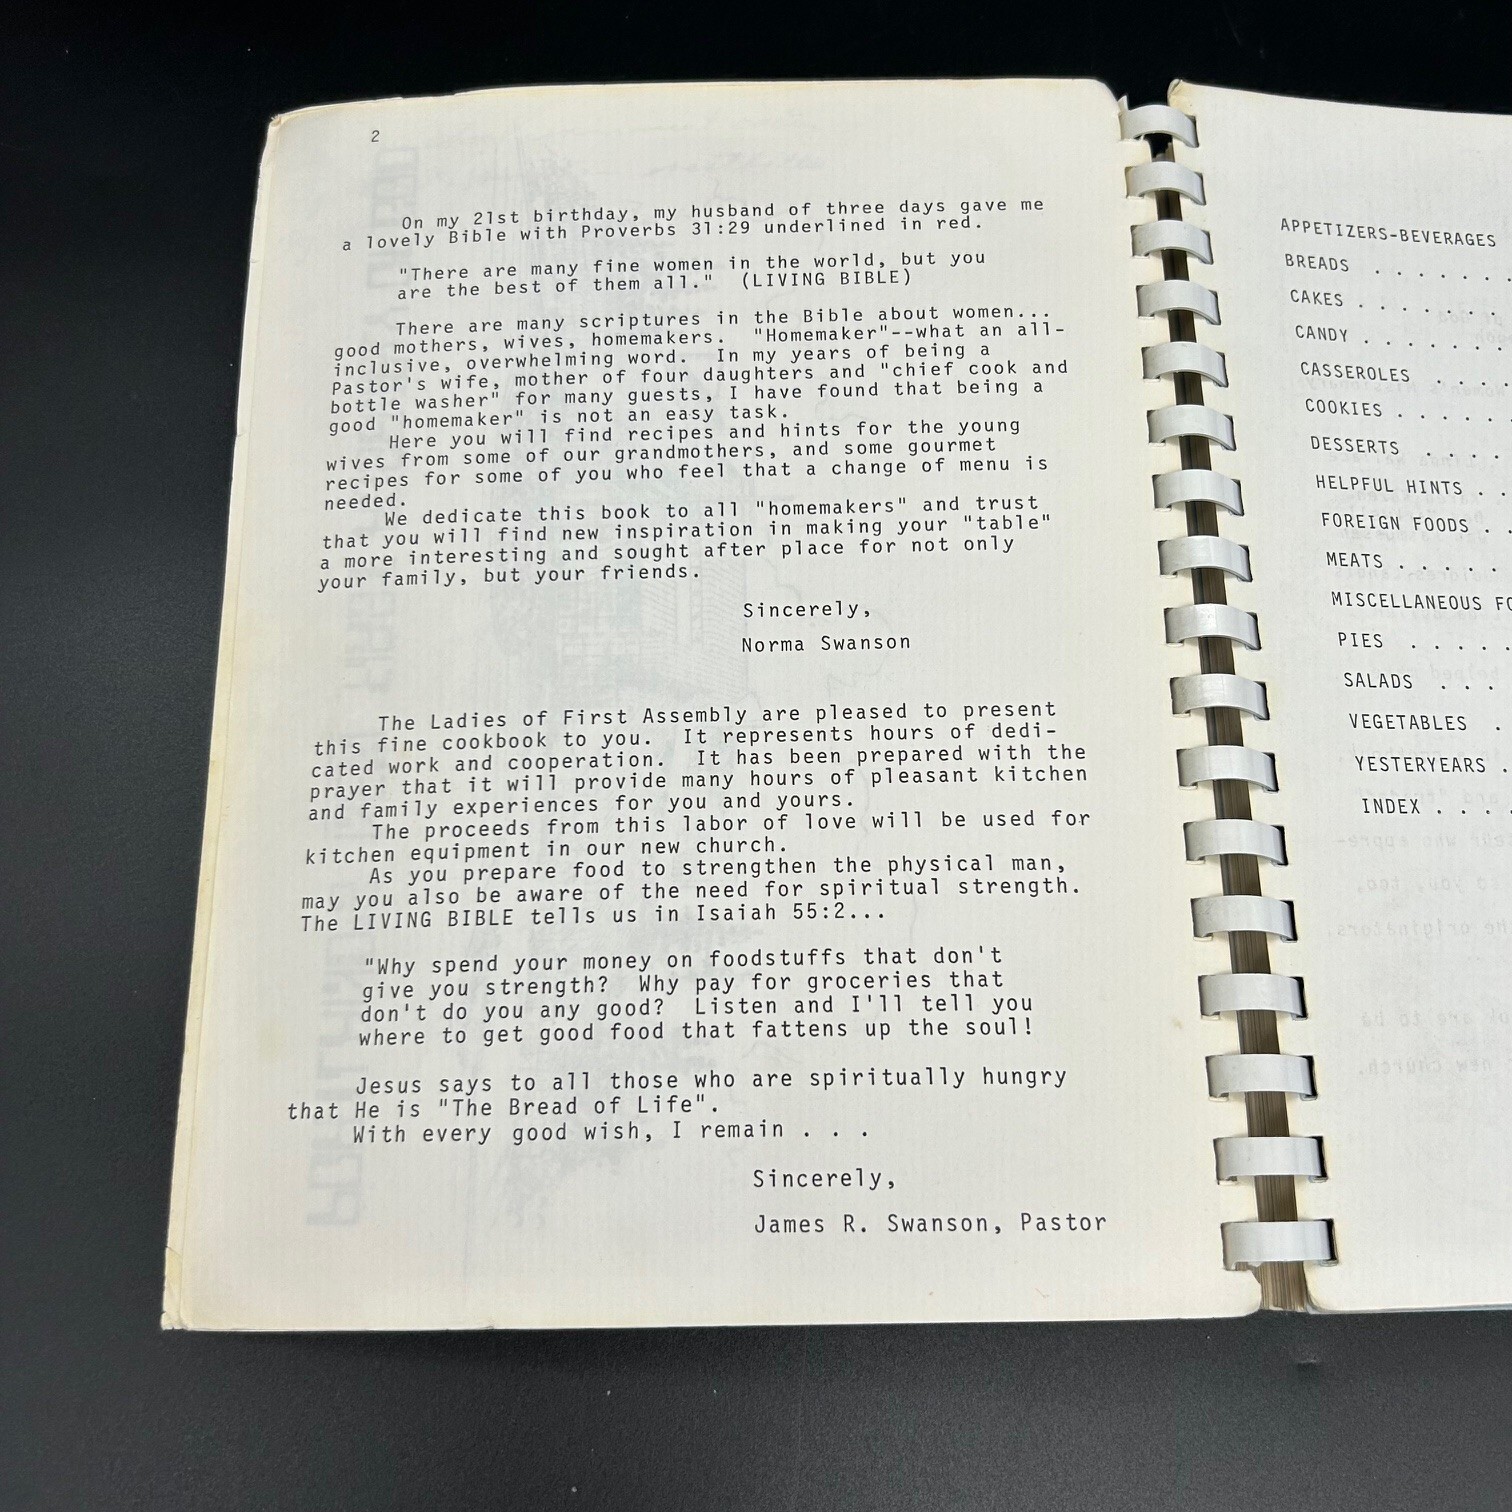 2
On my 21st birthday, my husband of three days gave me
a lovely Bible with Proverbs 31:29 underlined in red.
"There are many fine women in the world, but you
are the best of them all."  (LIVING BIBLE)
There are many scriptures in the Bible about women...
good mothers, wives, homemakers.  "Homemaker"--what an all-
inclusive, overwhelming word.  In my years of being a
Pastor's wife, mother of four daughters and "chief cook and
bottle washer" for many guests, I have found that being a
good "homemaker" is not an easy task.
Here you will find recipes and hints for the young
wives from some of our grandmothers, and some gourmet
recipes for some of you who feel that a change of menu is
needed.
We dedicate this book to all "homemakers" and trust
that you will find new inspiration in making your "table"
a more interesting and sought after place for not only
your family, but your friends.
Sincerely,
Norma Swanson
The Ladies of First Assembly are pleased to present
this fine cookbook to you.  It represents hours of dedi-
cated work and cooperation.  It has been prepared with the
prayer that it will provide many hours of pleasant kitchen
and family experiences for you and yours.
The proceeds from this labor of love will be used for
kitchen equipment in our new church.
As you prepare food to strengthen the physical man,
may you also be aware of the need for spiritual strength.
The LIVING BIBLE tells us in Isaiah 55:2...
"Why spend your money on foodstuffs that don't
give you strength?  Why pay for groceries that
don't do you any good?  Listen and I'll tell you
where to get good food that fattens up the soul!
Jesus says to all those who are spiritually hungry
that He is "The Bread of Life".
With every good wish, I remain . . .
Sincerely,
James R. Swanson, Pastor
APPETIZERS-BEVERAGES
BREADS . . . . . .
CAKES . . . . . . .
CANDY . . . . . . .
CASSEROLES . . . .
COOKIES . . . . . .
DESSERTS . . . .
HELPFUL HINTS . .
FOREIGN FOODS . .
MEATS . . . . . .
MISCELLANEOUS
PIES . . . . .
SALADS . . .
VEGETABLES .
YESTERYEARS .
INDEX . . . .